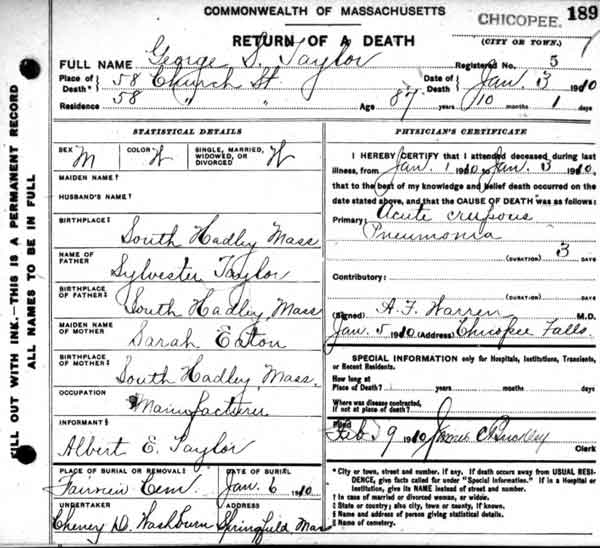 COMMONWEALTH OF MASSACHUSETTS
CHICOPEE. 189
RETURN OF A DEATH
(CITY OR TOWN.)
FULL NAME George S. Taylor Registered No. 5
Place of Death* 58 Church St. Date of Death Jan. 3 1910
Residence 58 " " Age 87 years 10 months 1 days
STATISTICAL DETAILS
SEX M COLOR W SINGLE, MARRIED, WIDOWED, OR DIVORCED W
MAIDEN NAME†
HUSBAND'S NAME†
BIRTHPLACE‡
South Hadley Mass
NAME OF FATHER
Sylvester Taylor
BIRTHPLACE OF FATHER‡
South Hadley, Mass
MAIDEN NAME OF MOTHER
Sarah Eaton
BIRTHPLACE OF MOTHER‡
South Hadley, Mass.
OCCUPATION
Manufacturer
INFORMANT§
Albert E. Taylor
PLACE OF BURIAL OR REMOVAL DATE OF BURIAL
Fairview Cem Jan. 6 1910
UNDERTAKER ADDRESS
Cheney D. Washburn Springfield Mass
PHYSICIAN'S CERTIFICATE
I HEREBY CERTIFY that I attended deceased during last
illness, from Jan. 1 1910 to Jan. 3 1910,
that to the best of my knowledge and belief death occurred on
date stated above, and that the CAUSE OF DEATH was as follows:
Primary: Acute croupous
Pneumonia
(DURATION) 3 DAYS
Contributory:
(DURATION) DAYS
(Signed) A. F. Warren M.D.
Jan. 5 1910 (Address) Chicopee Falls.
SPECIAL INFORMATION only for Hospitals, Institutions, Transients,
or Recent Residents.
How long at
Place of Death? years months days
Where was disease contracted,
if not at place of death?
Filed Feb 9 1910 James C. Buckley
Clerk
* City or town, street and number, if any. If death occurs away from USUAL RESI-
DENCE, give facts called for under "Special Information." If in a Hospital or
Institution, give its NAME instead of street and number.
† In case of married or divorced woman, or widow.
‡ State or country; also city, town or county, if known.
§ Name and address of person giving statistical details.
Name of cemetery.
FILL OUT WITH INK.—THIS IS A PERMANENT RECORD
ALL NAMES TO BE IN FULL